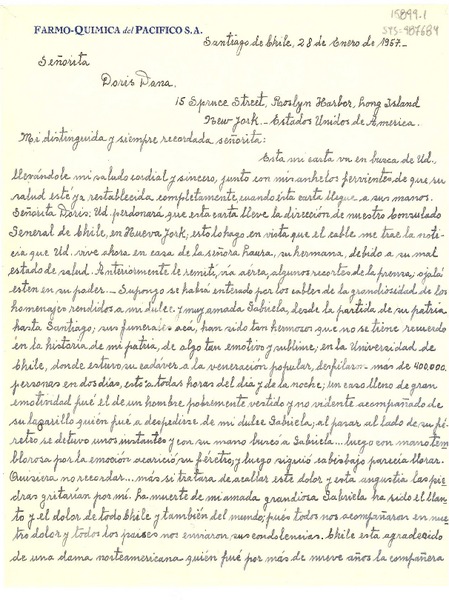 15899.1
SYS=987684
FARMO-QUIMICA del PACIFICO S.A.
Santiago de Chile, 28 de Enero de 1957.-
Señorita
Doris Dana.
15 Spruce Street, Roslyn Harbor, Long Island
New York.- Estados Unidos de America.
Mi distinguida y siempre recordada señorita:
Esta mi carta va en busca de Ud.,
llevándole mi saludo cordial y sincero, junto con mis anhelos fervientes de que su
salud esté ya restablecida completamente, cuando ésta carta llegue a sus manos.
Señorita Doris: Ud. perdonará que esta carta lleve la dirección de nuestro Consulado
General de Chile, en Nueva York; esto lo hago, en vista que el cable me trae la noti-
cia que Ud. vive ahora en casa de la señora Laura, su hermana, debido a su mal
estado de salud. Anteriormente le remití, via aérea, algunos recortes de la prensa; ojalá
esten en su poder.- Supongo se habrá enterado por los cables de la grandiosidad de los
homenajes rendidos a mi dulce y muy amada Gabriela, desde la partida de su patria
hasta Santiago; sus funerales acá, han sido tan hermosos que no se tiene recuerdo
en la historia de mi patria, de algo tan emotivo y sublime; en la Universidad de
Chile, donde estuvo su cadáver a la veneración popular, desfilaron más de 400,000
personas en dos dias, esto a todas horas del dia y de la noche; un caso lleno de gran
emotividad fué el de un hombre pobremente vestido y no vidente, acompañado de
su lazarillo quién fué a despedirse de mi dulce Gabriela; al pasar al lado de su fé-
retro se detuvo unos instantes y con su mano buscó a Gabriela... luego con mano tem
blorosa por la emoción acarició su féretro, y luego siguió cabisbajo parecía llorar.
Quisiera no recordar... más si tratara de acallar este dolor y esta angustia las pie-
dras gritarían por mí. La muerte de mi amada grandiosa Gabriela ha sido el llan-
to y el dolor de todo Chile y también del mundo; pués todos nos acompañaron en nues
tro dolor y todos los paises nos enviaron sus condolencias. Chile esta agradecido
de una dama norteamericana quién fué por más de nueve años la compañera